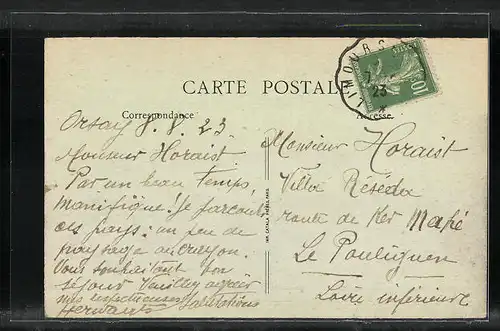 CARTE POSTALE
Correspondance
Adresse
LIMOURS
23
10
Orsay 8.8.23
Monsieur Horaist
Par un beau temps,
manifique! Je parcours
ces pays: un peu de
paysage
Vous souhaitant bon
séjour Veuillez agréer
mes respectueuses salutations
Monsieur Horaist
Villa Réséda
route de Ker Mahé
Le Pouliguen
Loire inférieure